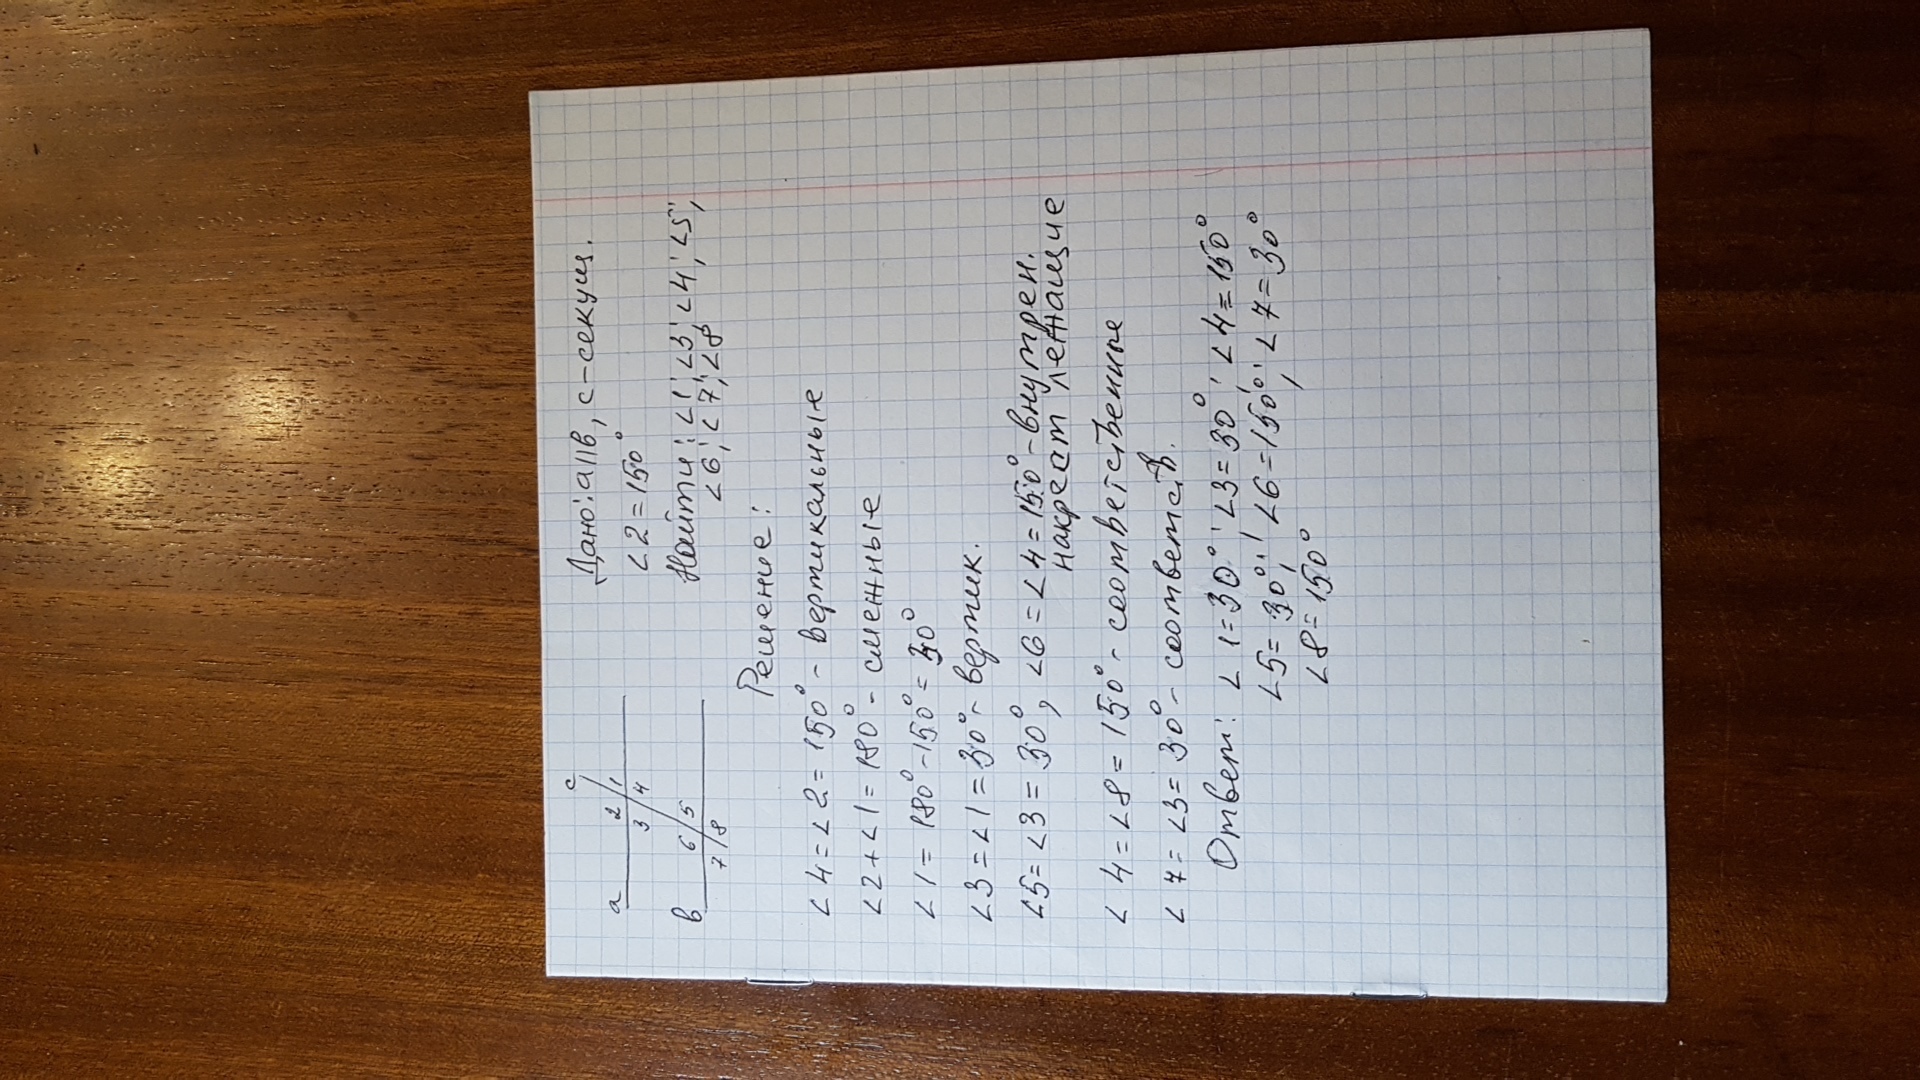 Дано: а||в, с-секущ.
∠2=150°
Найти: ∠1; ∠3; ∠4; ∠5;
∠6; ∠7; ∠8
с
а 2 1
3 4
в 6 5
7 8
Решение:
∠4=∠2=150° - вертикальные
∠2+∠1=180° - смежные
∠1=180°-150°=30°
∠3=∠1=30° - вертик.
∠5=∠3=30°, ∠6=∠4=150° - внутрен.
накрест лежащие
∠4=∠8=150° - соответственные
∠7=∠3=30° - соответств.
Ответ: ∠1=30°; ∠3=30°; ∠4=150°
∠5=30°; ∠6=150°; ∠7=30°
∠8=150°